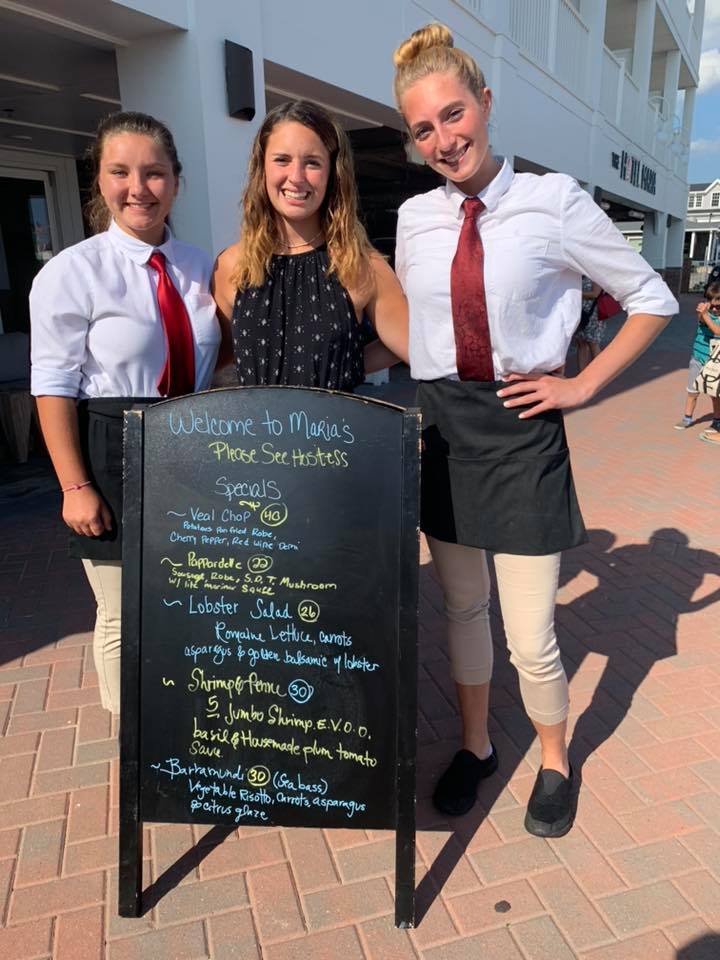 Welcome to Maria's
Please See Hostess
Specials
~ Veal Chop 43
Potatoes Pan fried Robe,
Cherry Pepper, Red Wine Demi
~ Pappardelle 22
Sausage, Robe, S.D.T. Mushroom
w/ lite marinar Sauce
~ Lobster Salad 26
Romaine Lettuce, carrots
asparagus & golden balsamic w/ lobster
~ Shrimp & Penne 30
5 Jumbo Shrimp, E.V.O.O.
basil & Housemade plum tomato
Sauce
~ Barramundi 30 (Sea bass)
Vegetable Risotto, Carrots, asparagus
& citrus glaze
THE